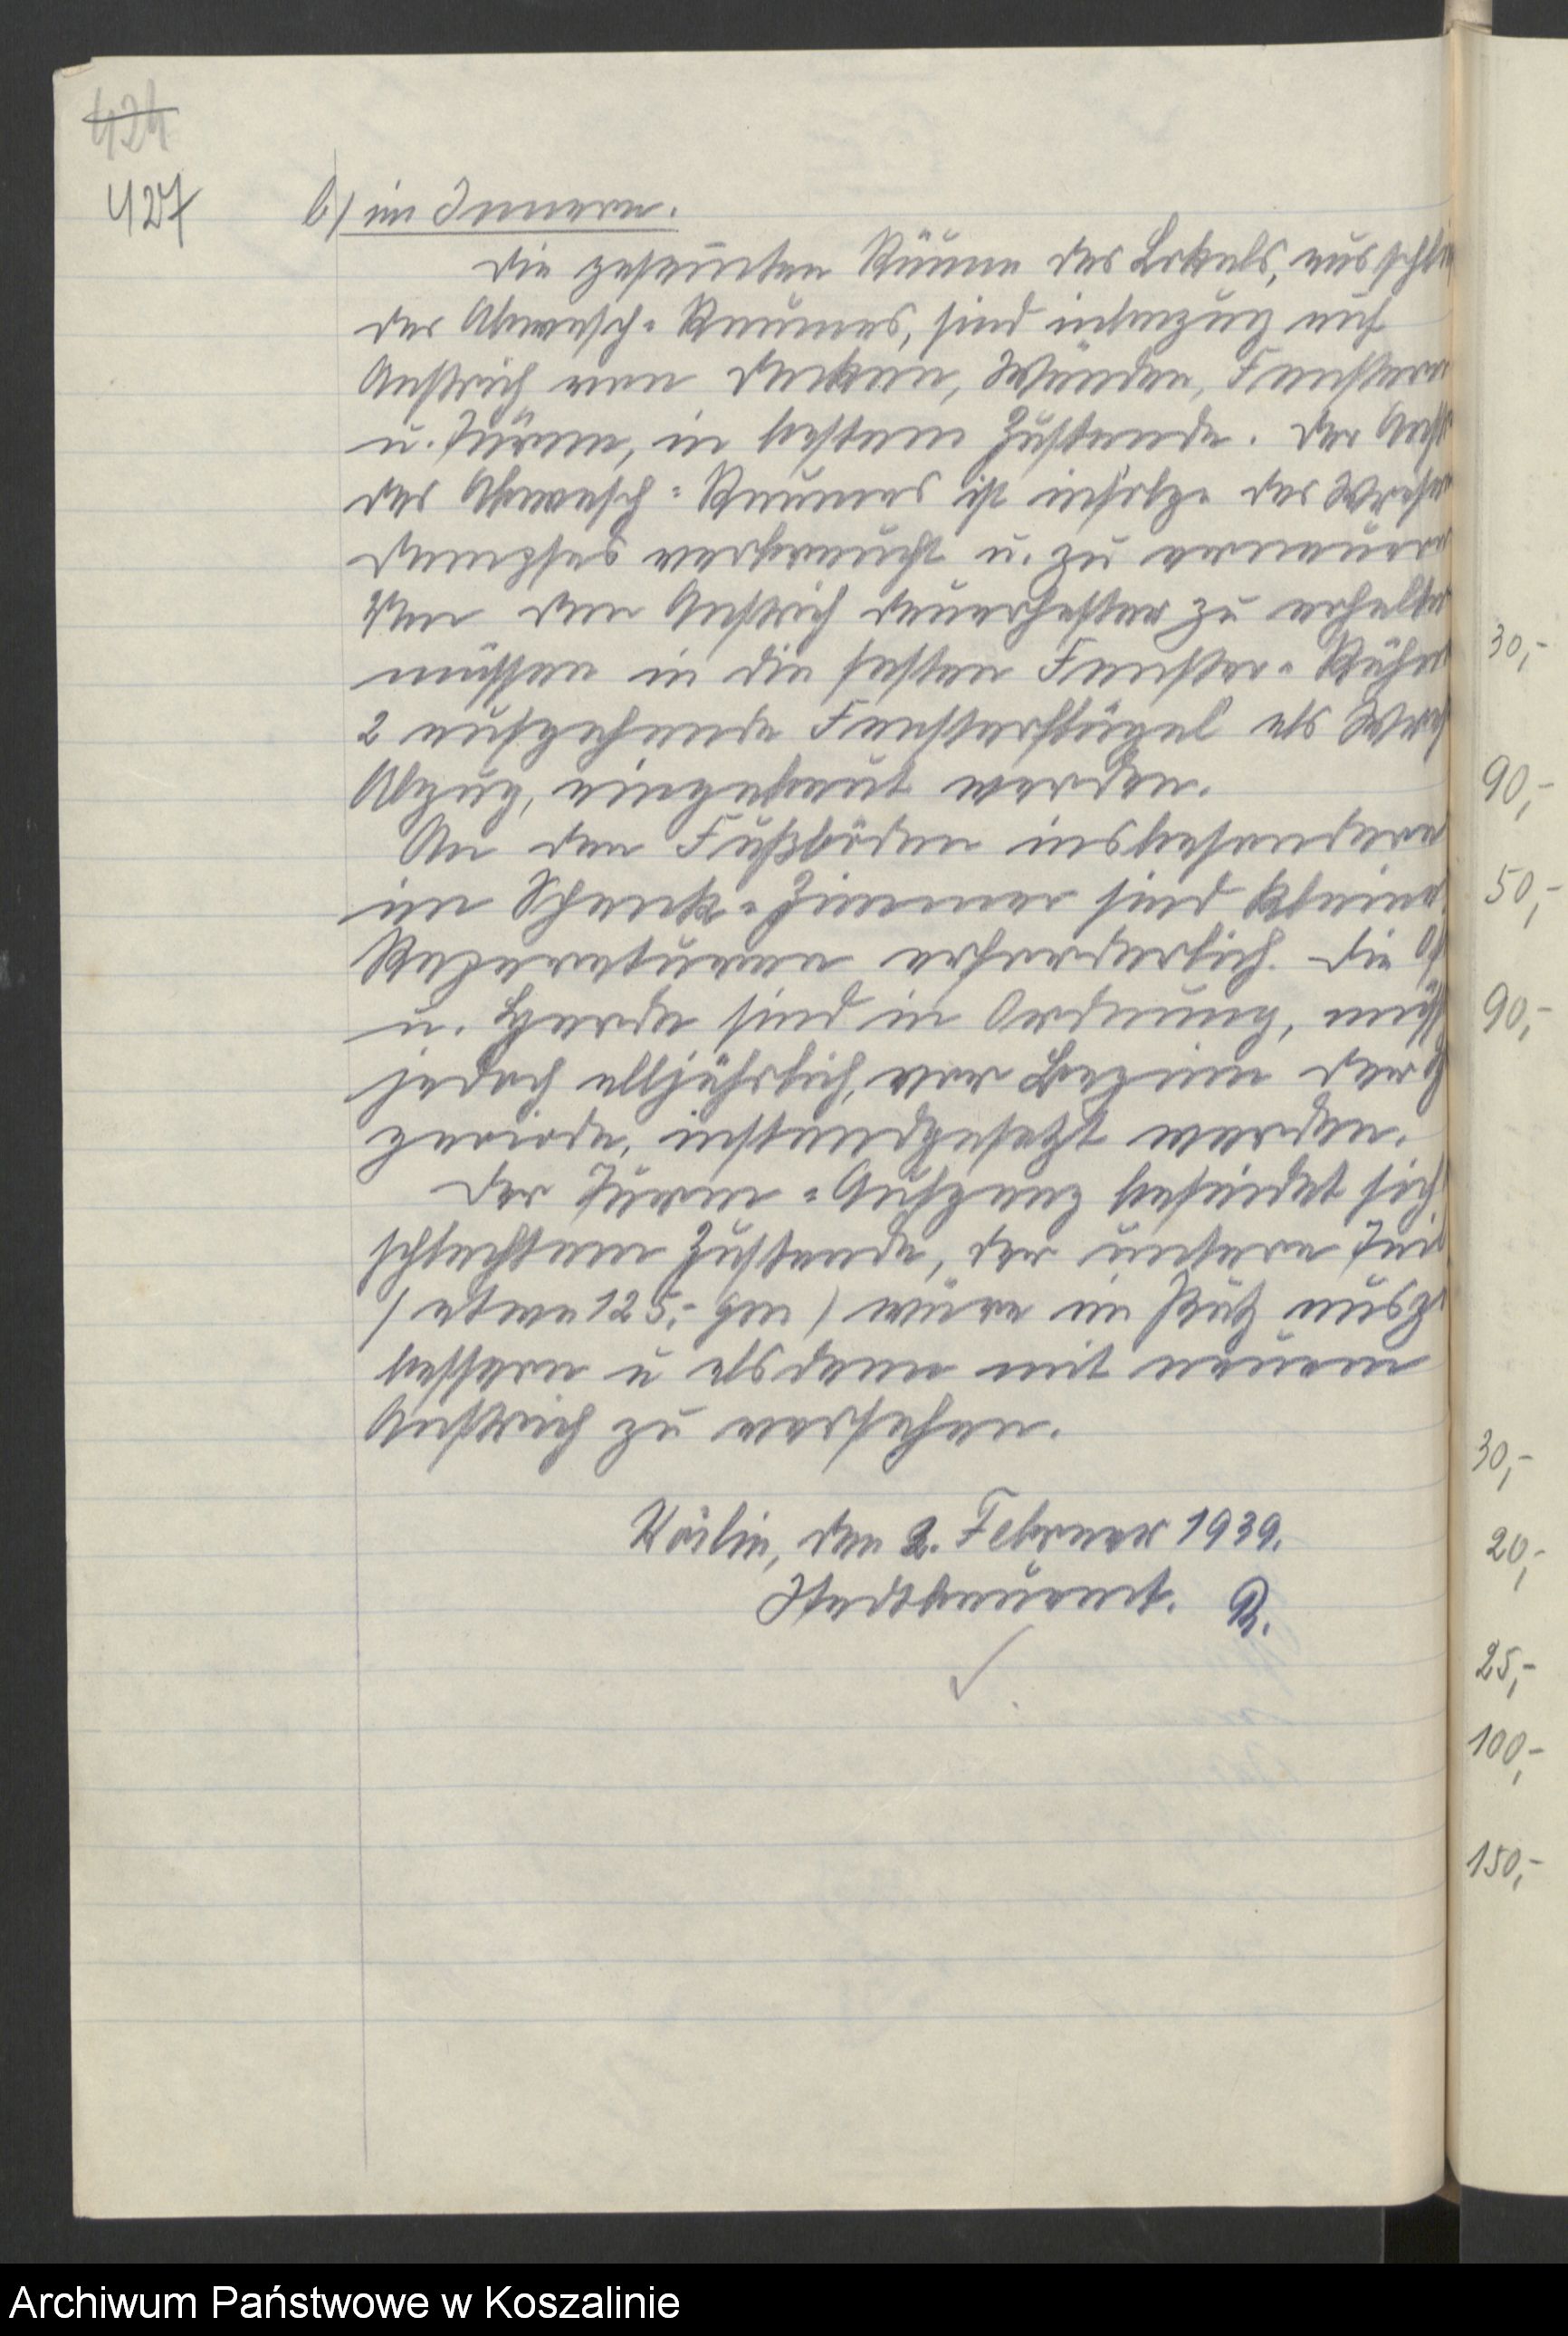 424
427
b) im Innern.
Die gesamten Räume des Lokals, ausschl
des Abwasch-Raumes, sind inbezug auf
Anstrich von Decken, Wänden, Fenstern
u. Türen, in bestem Zustande. Der Anst
des Abwasch-Raumes ist infolge des
dampfes verbraucht u. zu erneuern
Um den Anstrich dauerhafter zu erhalten
müssen in die festen Fenster-
2 aufgehende Fensterflügel als
Abzug, eingebaut werden.
An den Fußböden insbesondere
im Schenk-Zimmer sind kleine
Reparaturen erforderlich. Die Öf
u. Herde sind in Ordnung, müss
jedoch alljährlich, vor Beginn der H
periode, instandgesetzt werden.
Der Turm-Aufgang befindet sich
schlechtem Zustande, der untere Teil
/ etwa 125,- qm / wäre im Putz ausz
bessern u alsdann mit neuem
Anstrich zu versehen.
Köslin, den 2. Februar 1939.
Stadtbauamt. R.
30,-
90,-
50,-
90,-
30,-
20,-
25,-
100,-
150,-
Archiwum Państwowe w Koszalinie